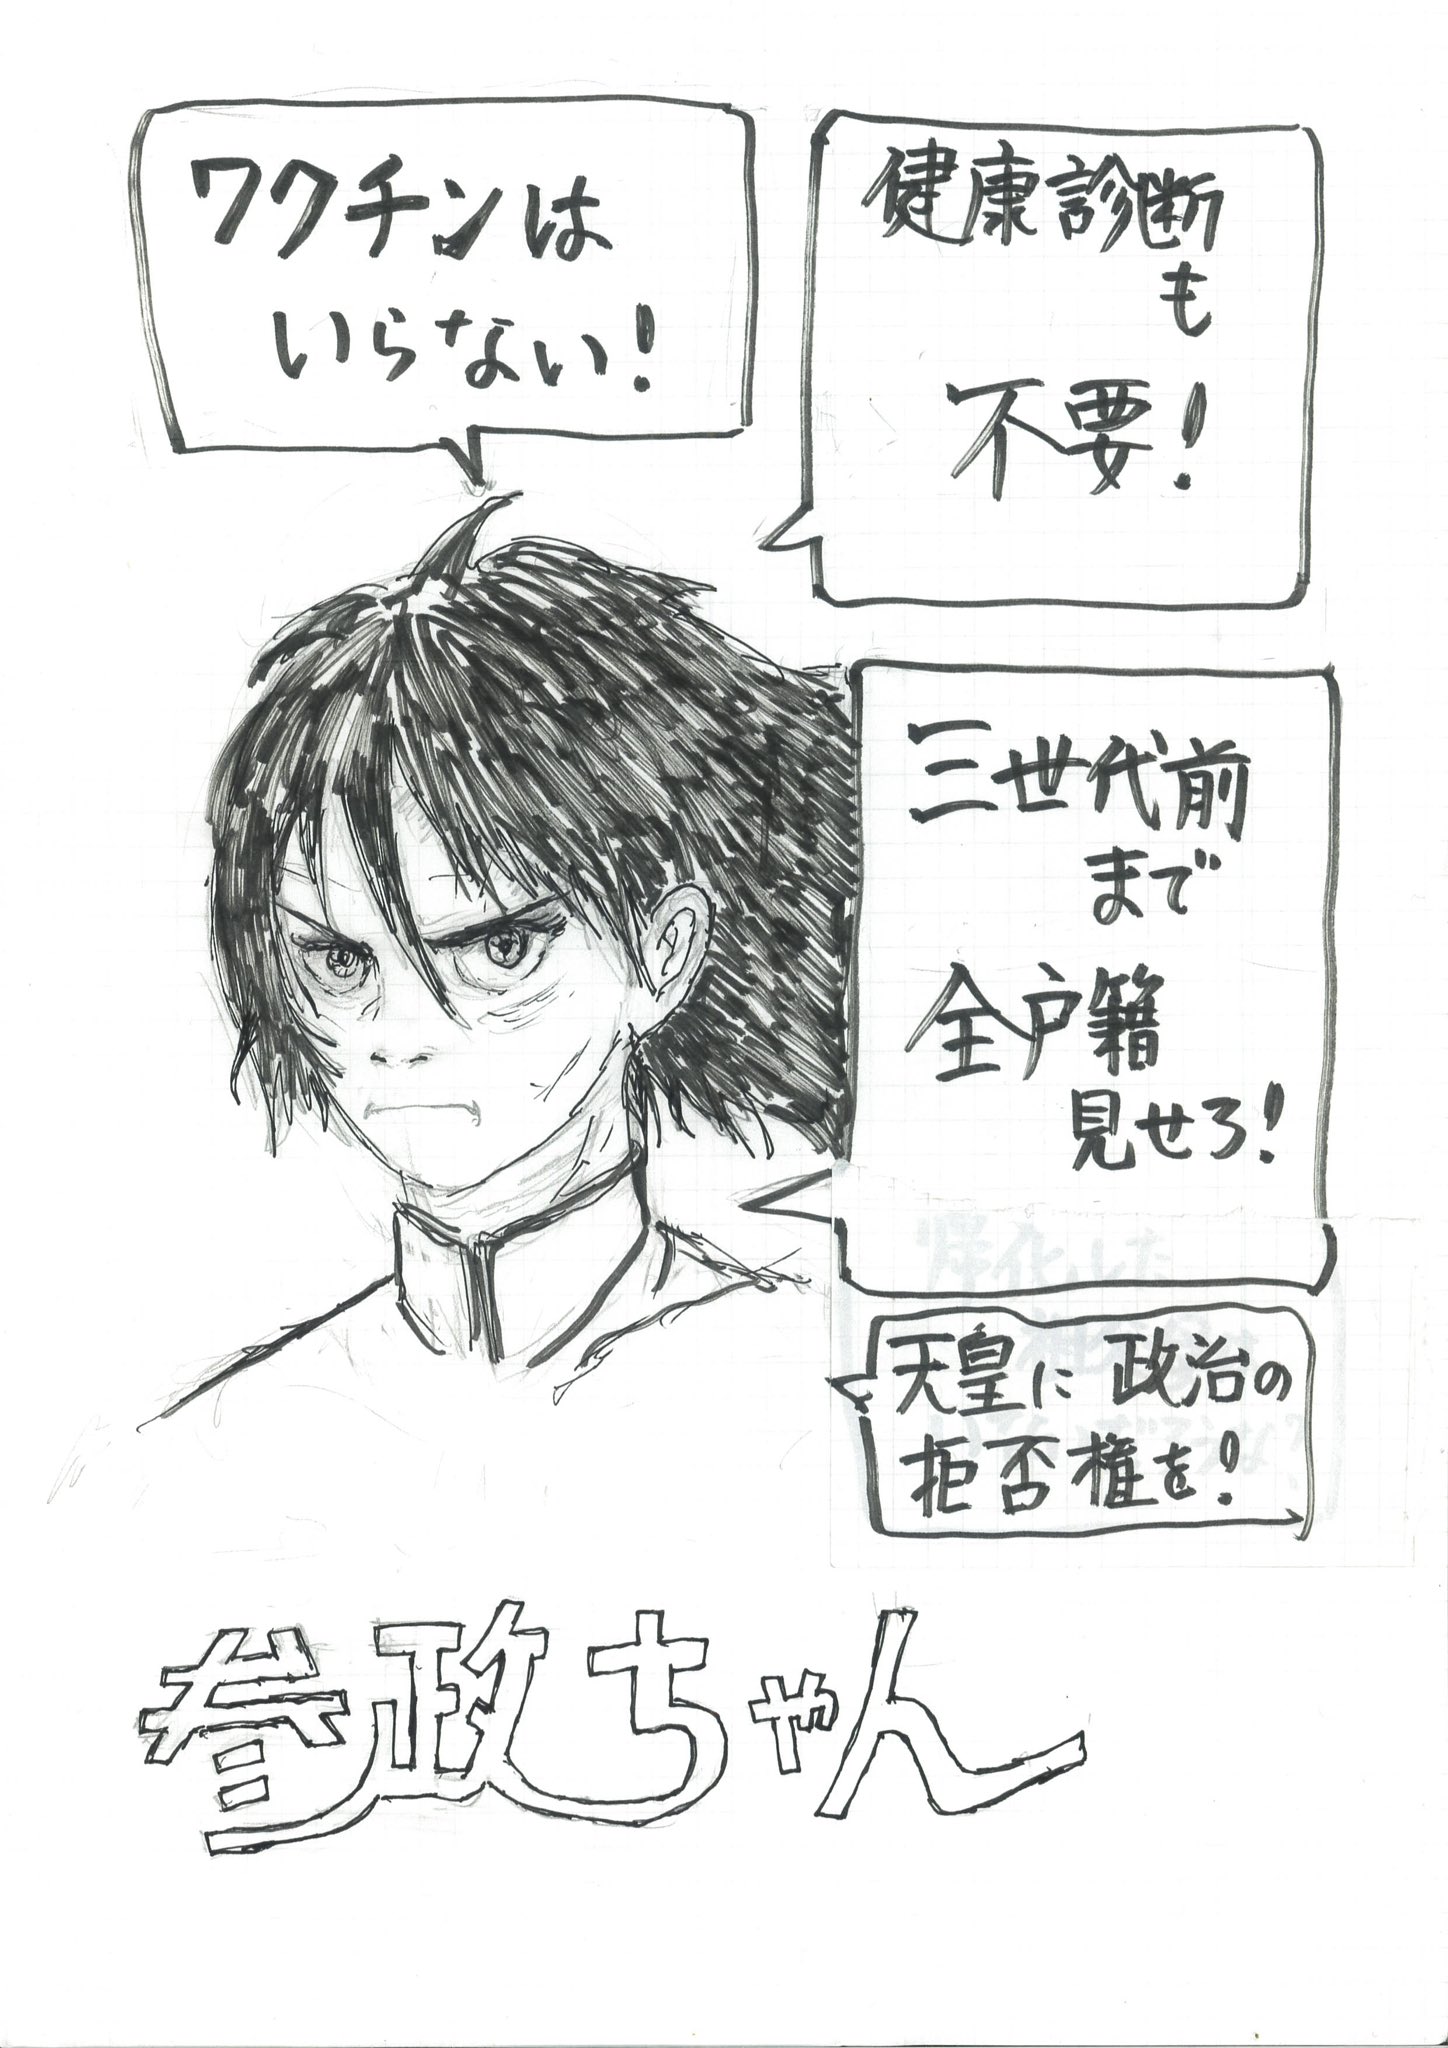 ワクチンは
いらない!
健康診断
も
不要!
三世代前
まで
全戸籍
見せろ!
天皇に政治の
拒否権を!
参政ちゃん